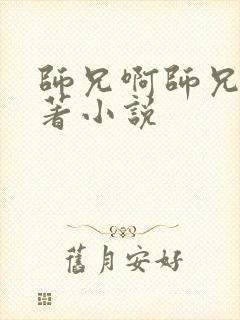 師兄啊師兄
著小說
舊月安好